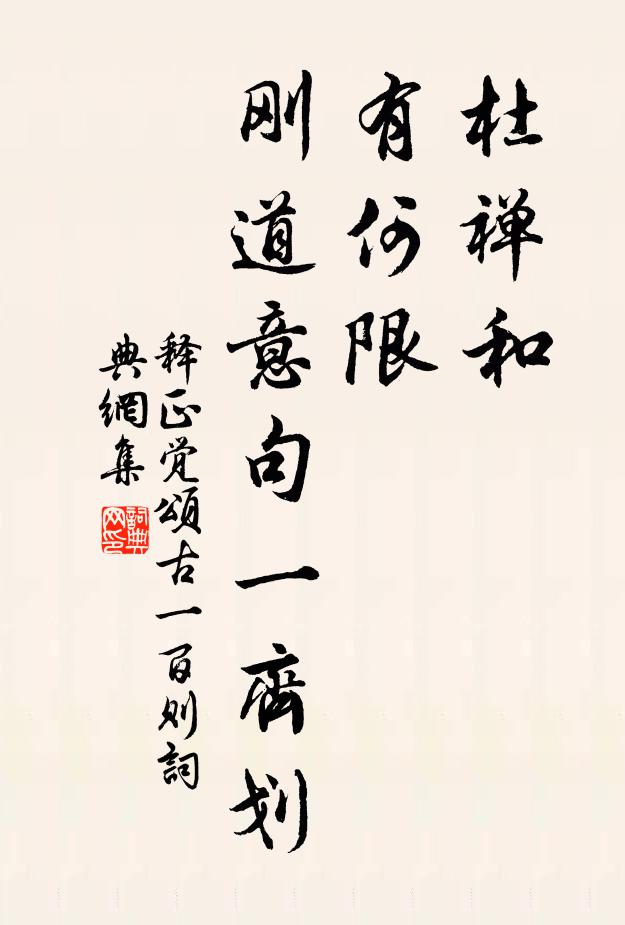 杜禅和
有何限
刚道意句一齊划
释正觉頌古一百则詞
典網集
詞典网印